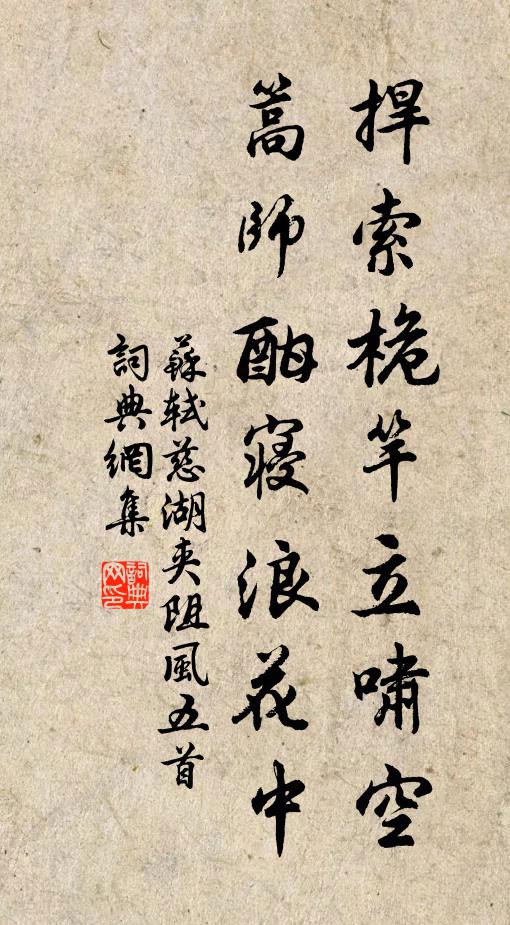 捍索桅竿立啸空
篙師酣寢浪花中
蘇軾慈湖夾阻風五首
詞典網集
詞典网印